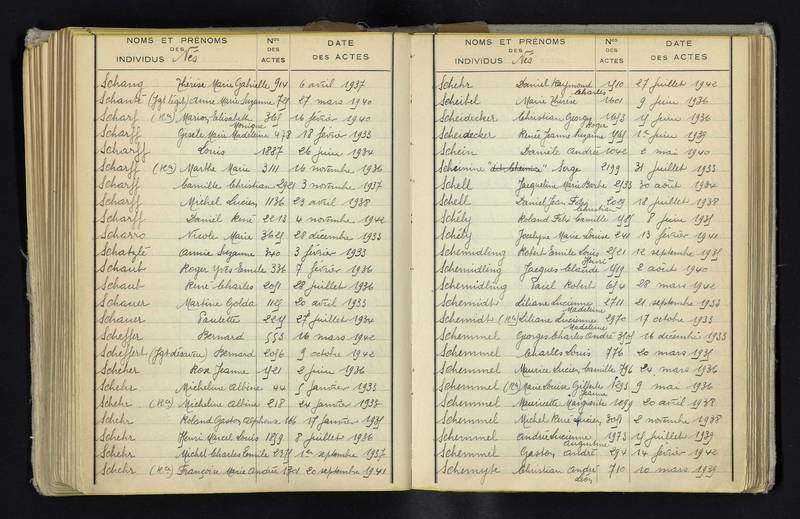 NOMS ET PRÉNOMS
DES
INDIVIDUS Nés
Nos
DES
ACTES
DATE
DES ACTES
Schang Thérèse Marie Gabrielle 914 6 avril 1937
Schanté (Jgt légit) Anne Marie Suzanne 27 mars 1940
Scharf (Ron) Marion Elisabeth 16 février 1940
Monique
Scharff Gisèle Marie Madeleine 478 18 févr. 1933
Scharff Louis 1887 26 juin 1934
Scharff (Ron) Marthe Marie 3111 16 novembre 1936
Scharff Camille Christian 2921 3 novembre 1937
Scharff Michel Lucien 1136 29 avril 1938
Scharff Daniel René 2213 4 novembre 1942
Scharro Nicole Marie 28 décembre 1933
Schatzlé Annie Suzanne 340 3 février 1933
Schaub Roger Yves Emile 336 7 février 1936
Schaub René Charles 28 juillet 1936
Schauer Martine Golda 20 avril 1933
Schauer Paulette 27 juillet 1934
Scheffer Bernard 553 16 mars 1942
Scheffert (Jgt désaveu) Bernard 9 octobre 1942
Schéher Rose Jeanne 2 juin 1936
Schehr Micheline Albine 44 5 janvier 1933
Schehr (Ron) Micheline Albine 218 24 janvier 1933
Schehr Roland Gaston Alphonse 164 janvier
Schehr Henri Marcel Louis 8 juillet 1936
Schehr Michel Charles Emile 1er septembre 1937
Schehr (Ron) Françoise Marie Andrée 1301 20 septembre 1941
NOMS ET PRÉNOMS
DES
INDIVIDUS Nés
Nos
DES
ACTES
DATE
DES ACTES
Schehr Daniel Raymond 27 juillet 1942
Charles
Scheibel Marie Thérèse 1601 9 juin 1936
Scheidecker Christian Georges juin 1936
Roger
Scheidecker Renée Jeanne Suzanne 1er juin 1939
Schein Danièle Andrée 1042 2 mai 1940
Scheinine Serge 2199 31 juillet 1933
Schell Jacqueline Marie Berthe 2133 30 août 1934
Schell Daniel Jean Felix 18 juillet 1938
Christian
Schély Roland Felix Camille 8 juin
Schély Jocelyne Marie Louise 241 13 février 1941
Schemidling Robert Emile Louis 12 septembre
Henri
Schemidling Jacques Claude 2 août 1940
Schemidling Paul Robert 28 mars 1942
Schemidt Liliane Lucienne 2711 21 septembre 1933
Madeleine
Schemidt (Ron) Liliane Lucienne 2970 17 octobre 1933
Madeleine
Schemmel Georges Charles André 16 décembre 1933
Schemmel Charles Louis 776 20 mars
Schemmel Maurice Lucien Camille 796 24 mars 1936
Schemmel (Ron) Marie Louise Gilberte 1233 9 mai 1936
Jeanne
Schemmel Mauricette Marguerite 20 avril 1938
Schemmel Michel René Lucien 2 novembre 1938
Schemmel Andrée Lucienne 1973 juillet 1939
Augustine
Schemmel Gaston André 294 14 février 1942
Schemyte Christian André 710 10 mars 1939
Léon